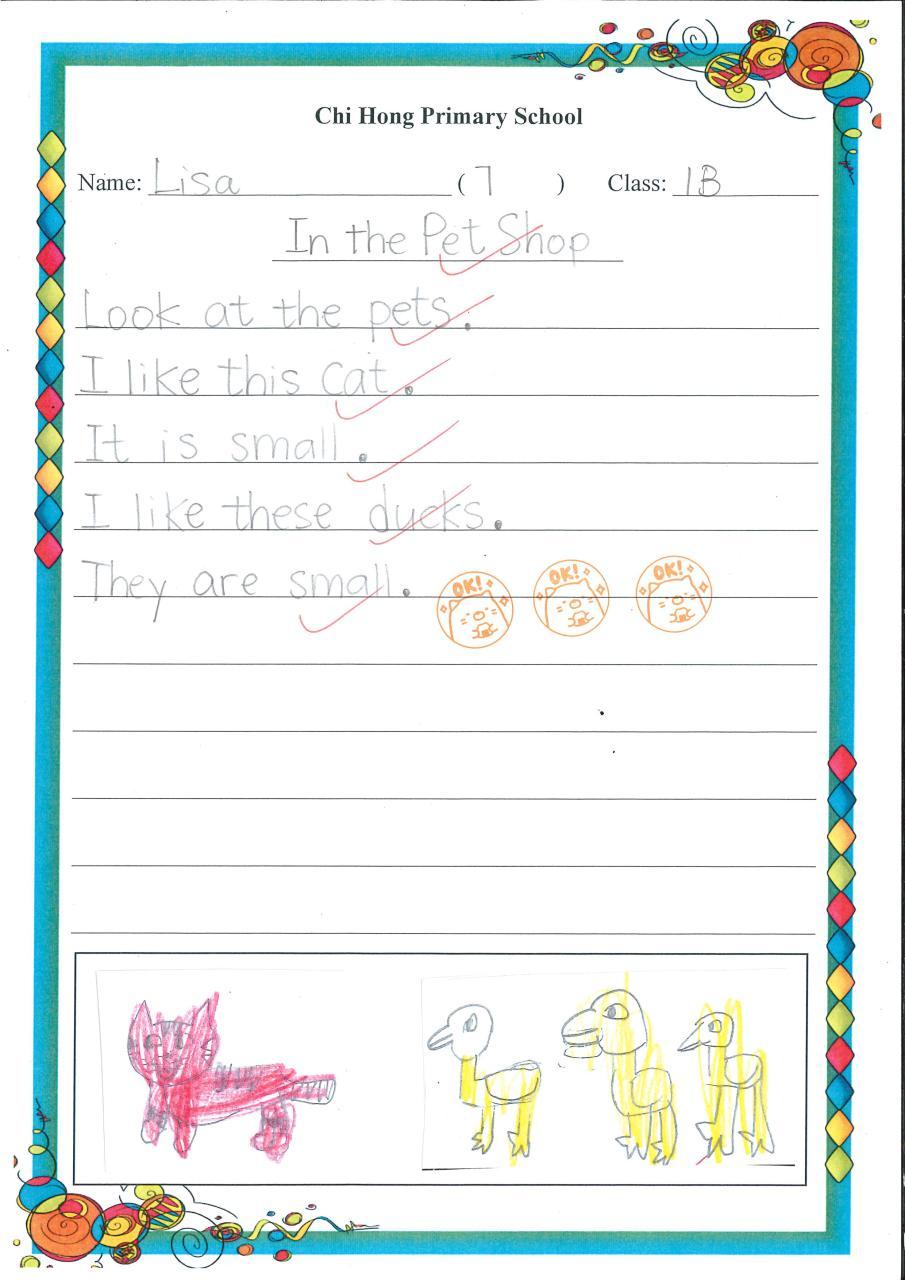 Chi Hong Primary School
Name: Lisa (7) Class: 1B
In the Pet Shop
Look at the pets.
I like this cat.
It is small.
I like these ducks.
They are small.
OK! OK! OK!